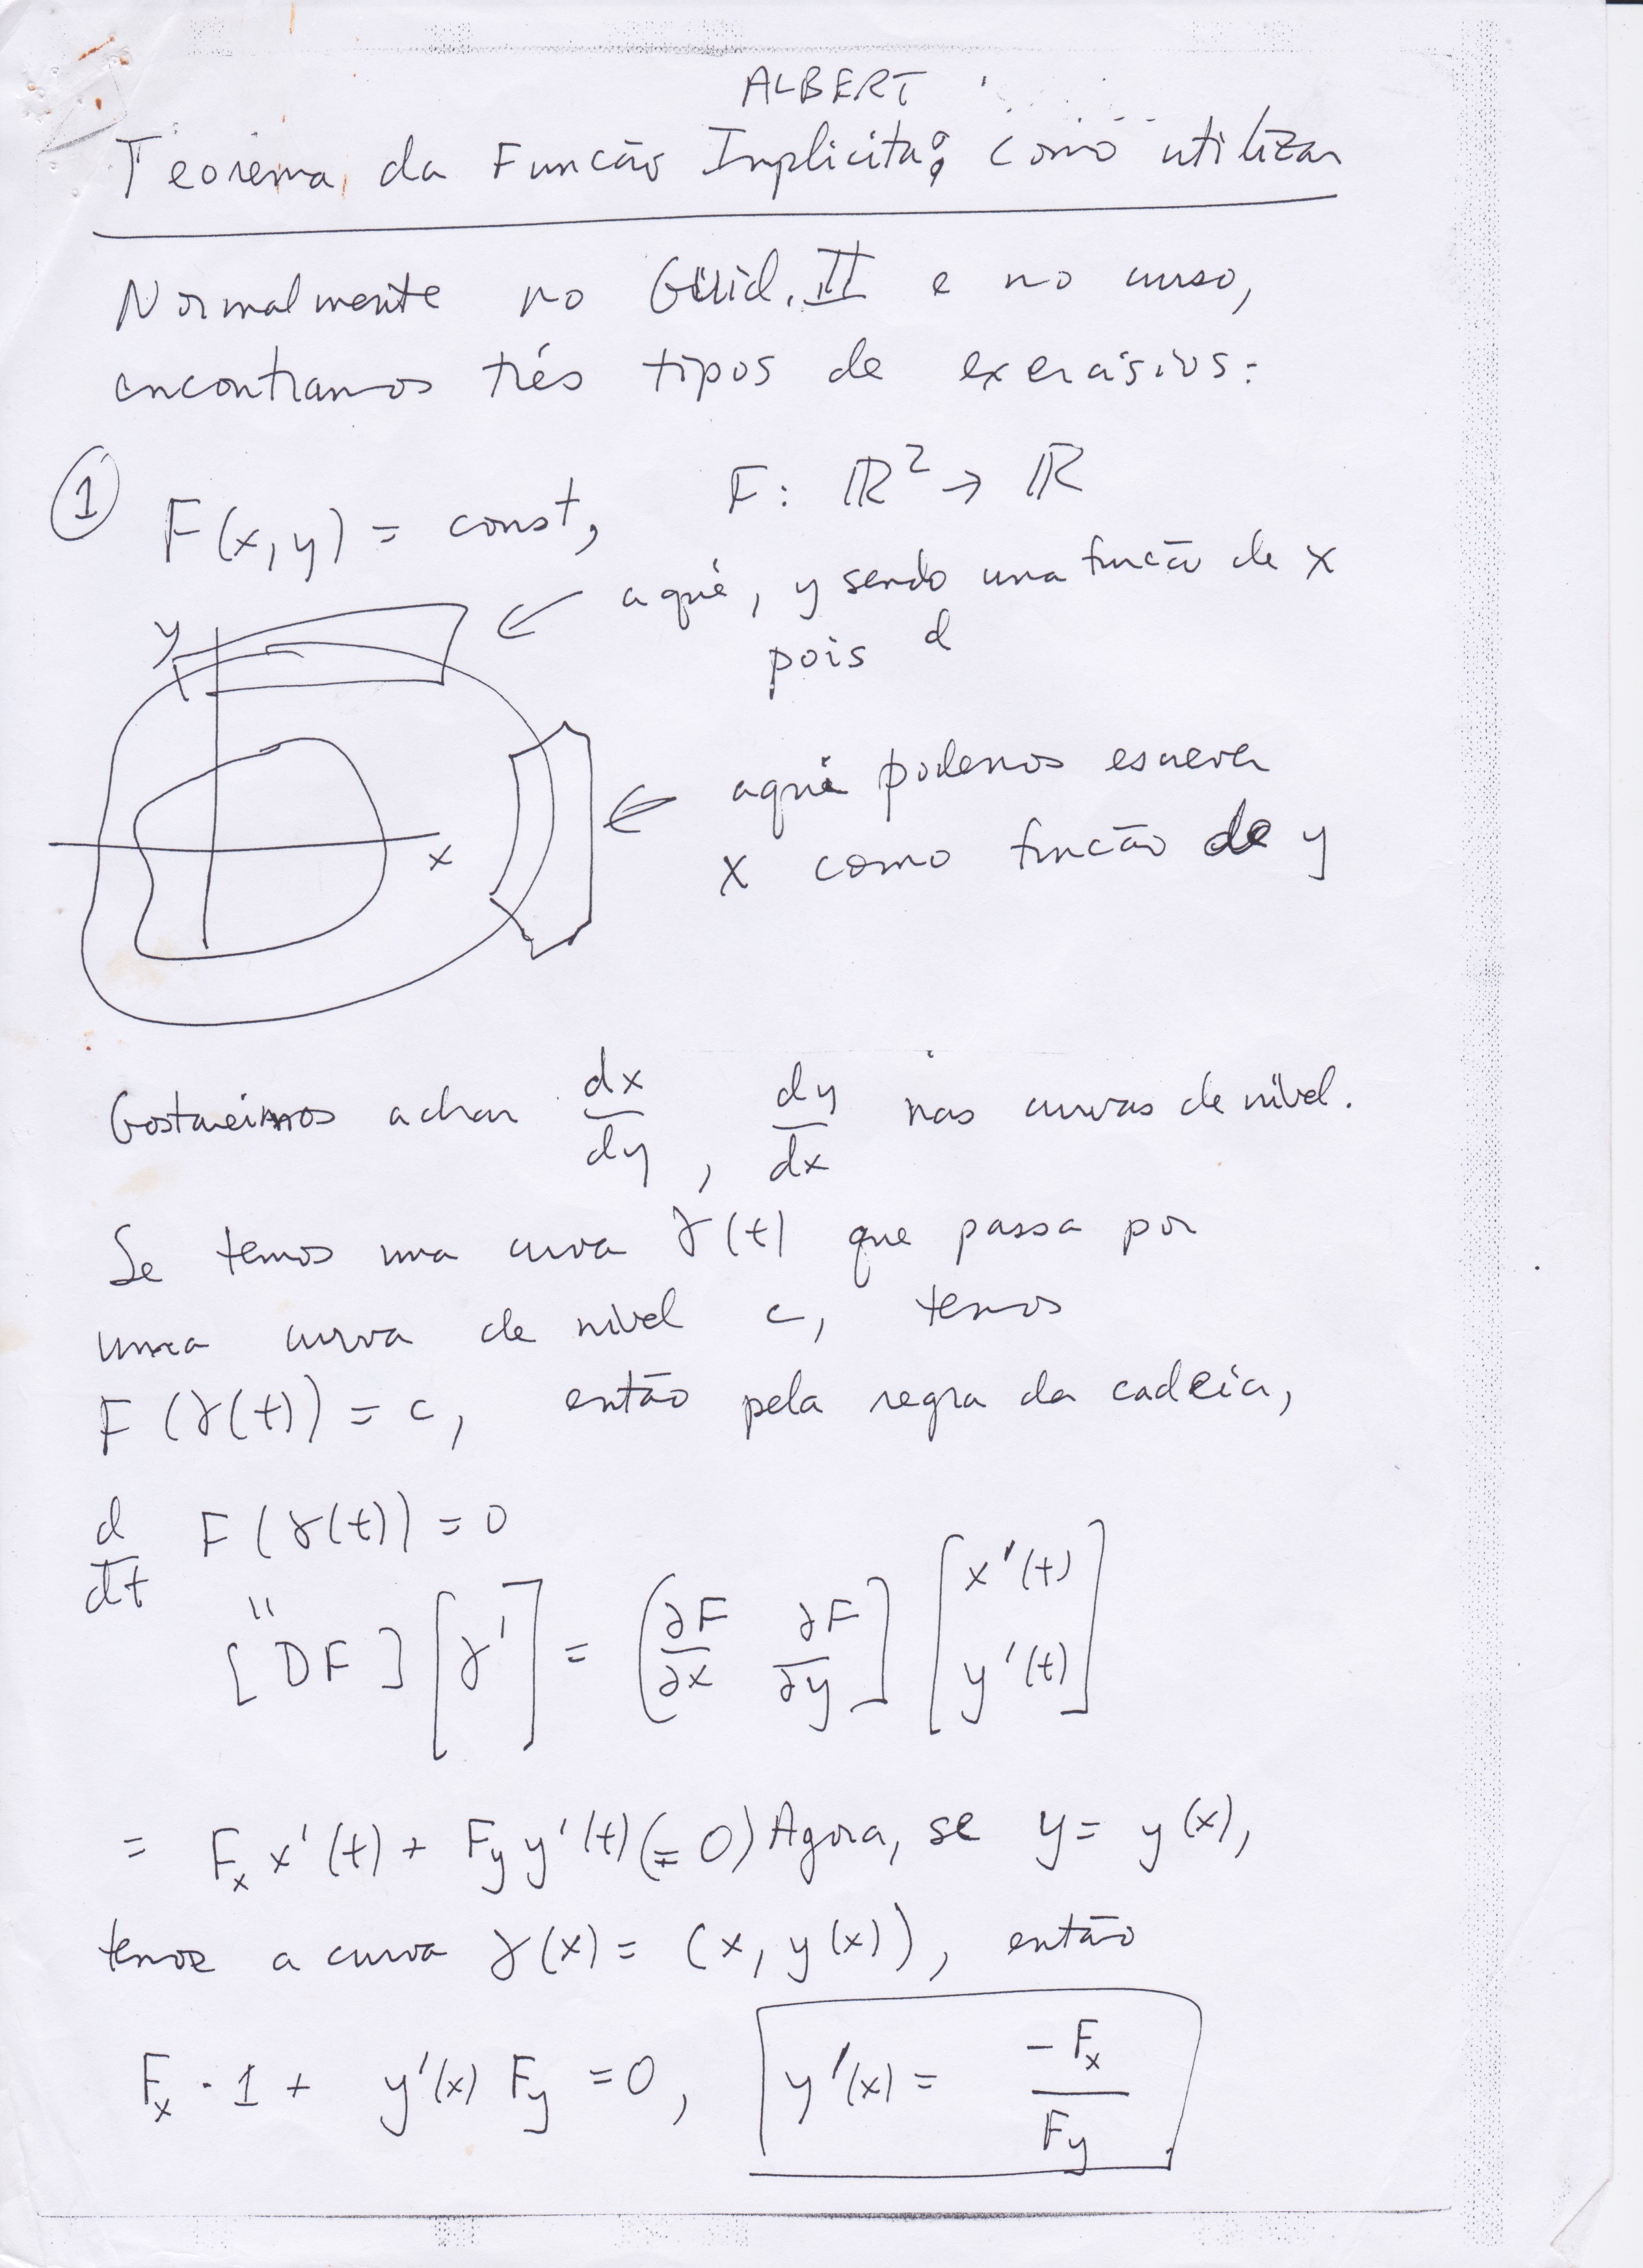 ALBERT
Teorema da Função Implicita: como utilizar
Normalmente no Guid. II e no curso,
encontramos três tipos de exercísios:
① F(x,y) = const, F: ℝ² → ℝ
aqui, y sendo uma função de x
pois d
y
aqui podemos escrever
x como função de y
x
Gostariamos achar dx/dy, dy/dx nas curvas de nível.
Se temos uma curva γ(t) que passa por
uma curva de nível c, temos
F(γ(t)) = c, então pela regra da cadeia,
d/dt F(γ(t)) = 0
"
[DF][γ'] = [∂F/∂x ∂F/∂y] [x'(t) y'(t)]
= Fₓ x'(t) + F_y y'(t) (= 0) Agora, se y = y(x),
temos a curva γ(x) = (x, y(x)), então
Fₓ · 1 + y'(x) F_y = 0, y'(x) = -Fₓ/F_y